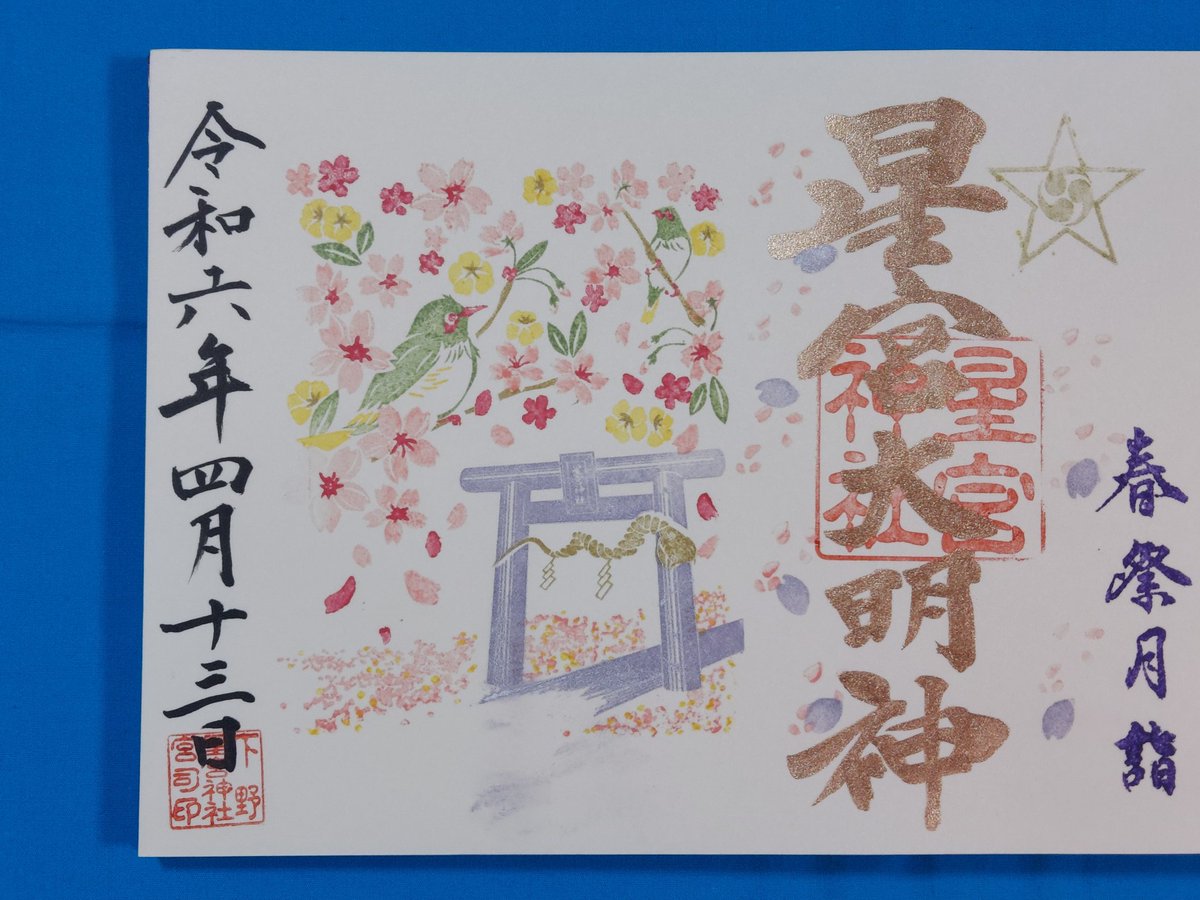 春祭月詣
星宮大明神
星宮
神社
令和六年四月十三日
下野
星宮神社
宮司印